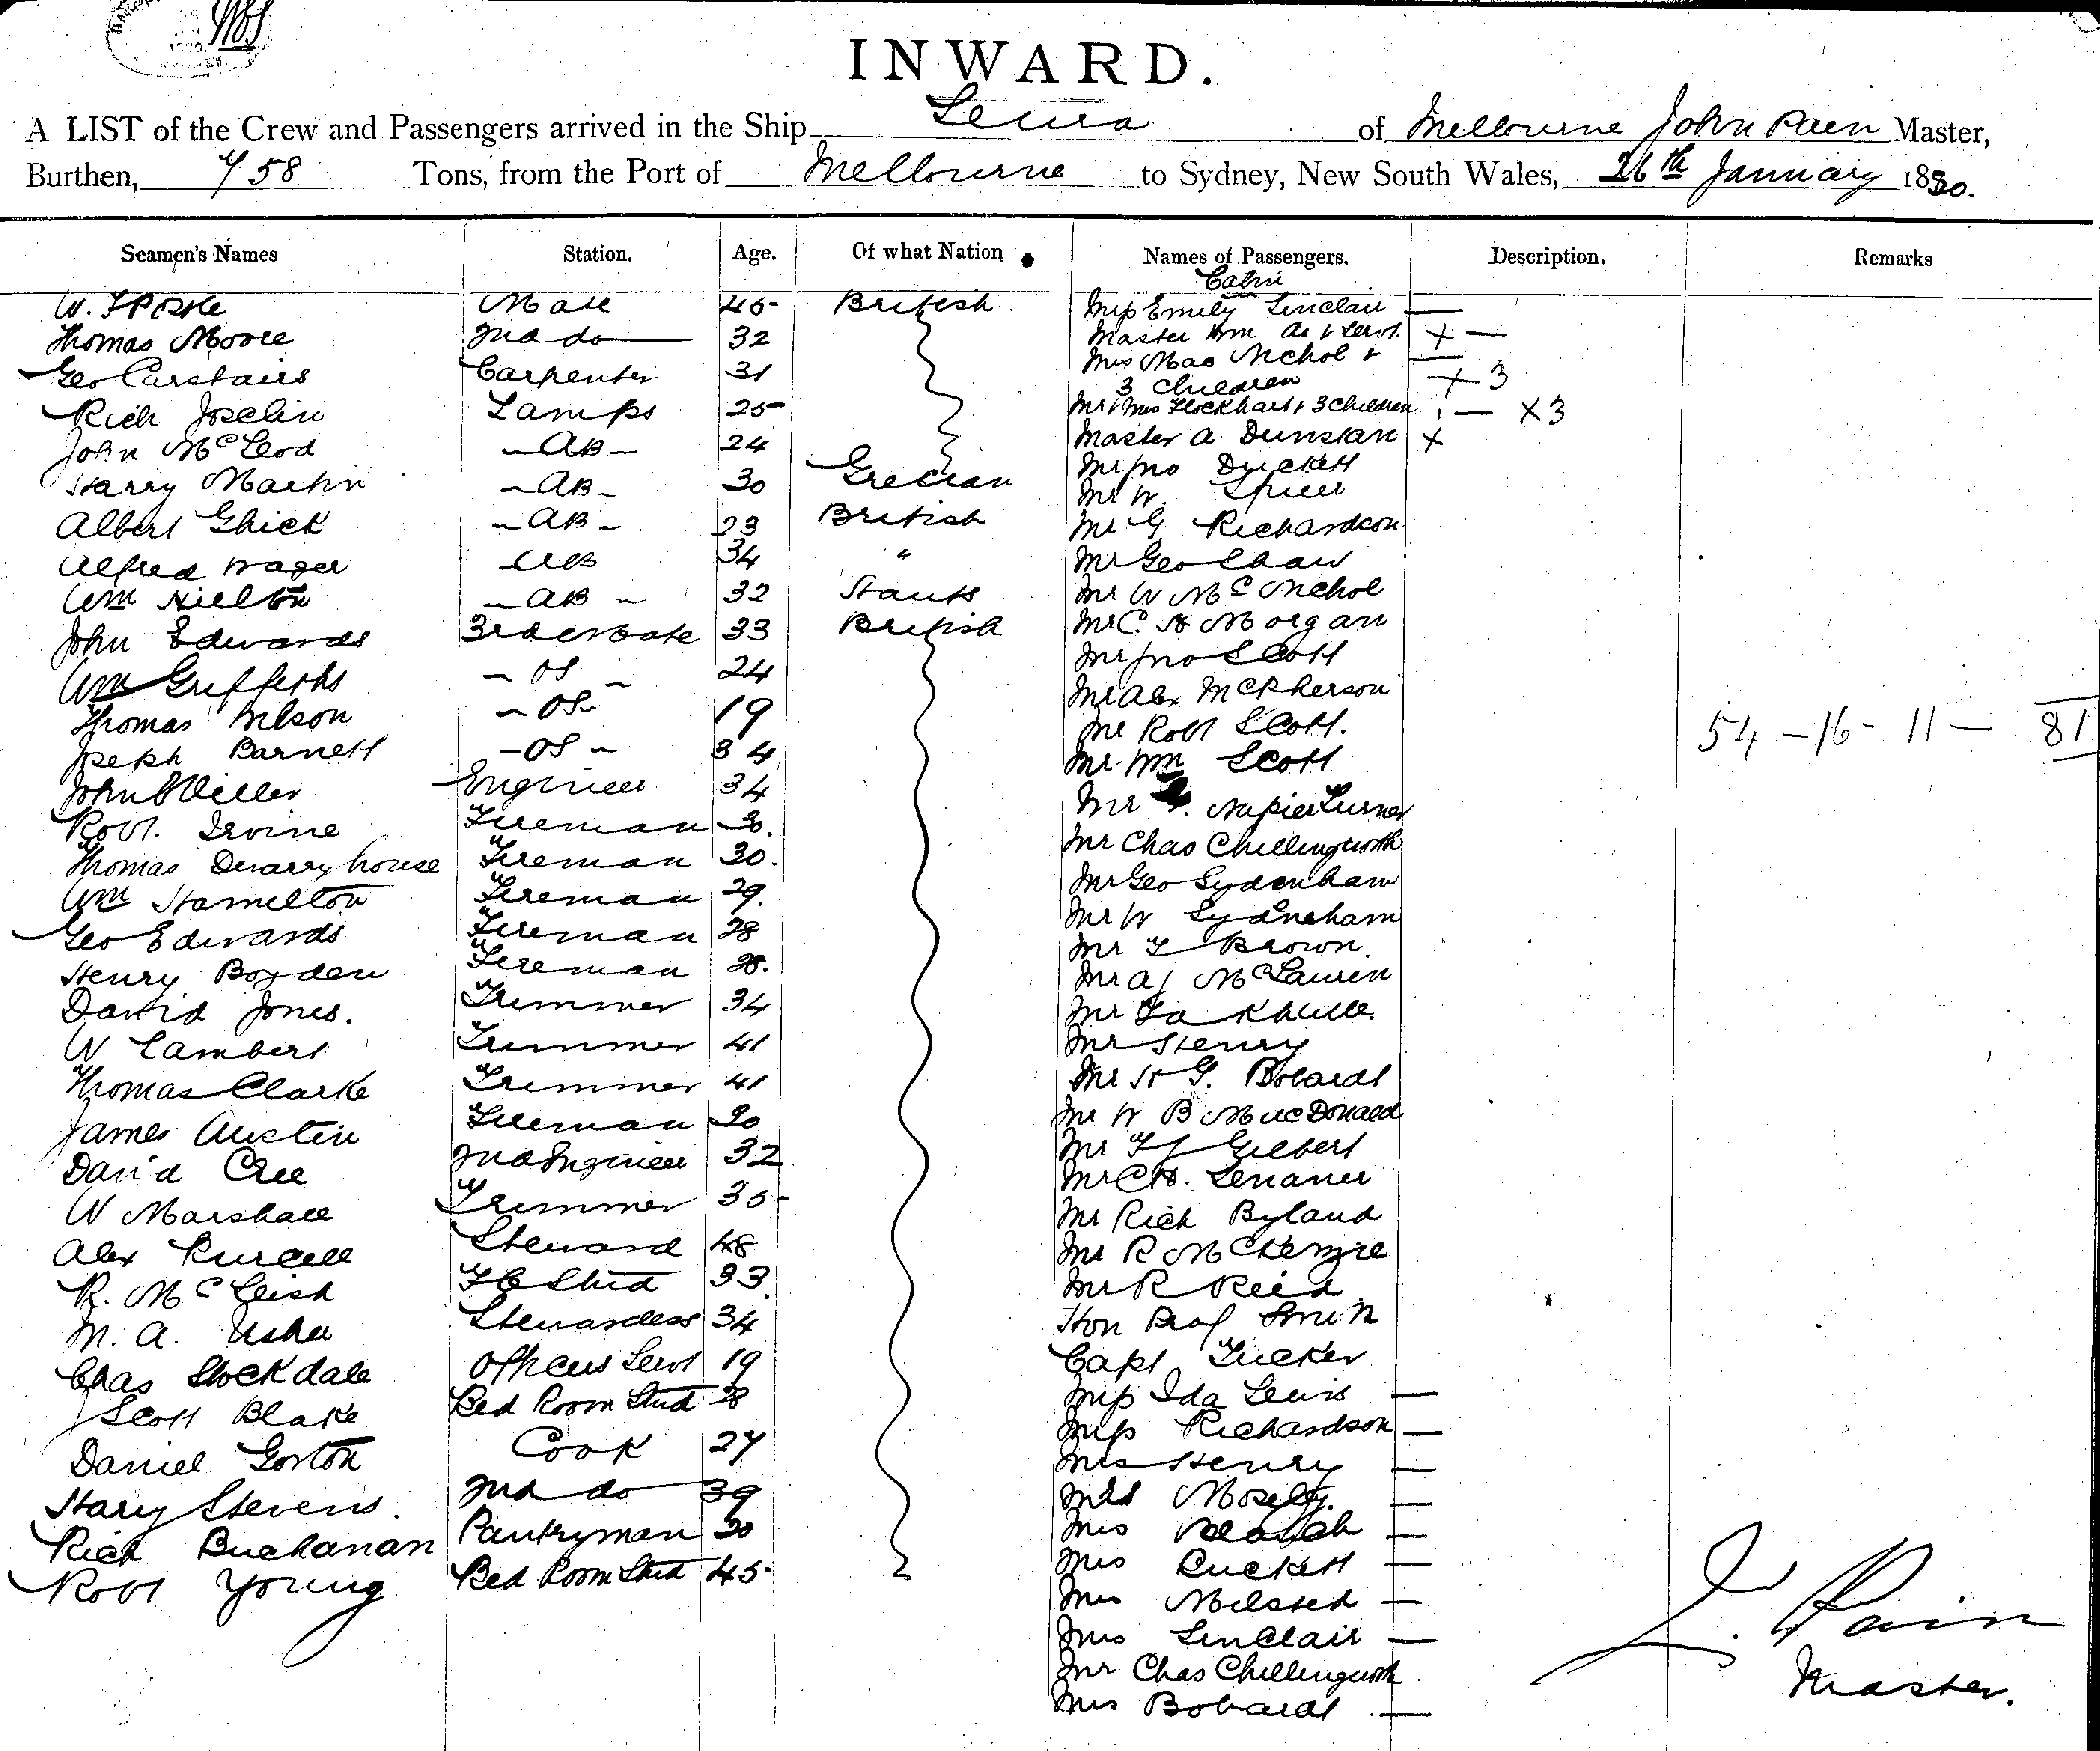 INWARD.
A LIST of the Crew and Passengers arrived in the Ship Leura of Melbourne John Pain Master,
Burthen, 758 Tons, from the Port of Melbourne to Sydney, New South Wales, 26th January 1880.
Seamen's Names Station. Age. Of what Nation Names of Passengers. Description. Remarks
Cabin
W. Mate 45 British Miss Emily Sinclair —
Thomas Moore 2nd do 32 Master Wm Do & Servt. × —
Geo Carstairs Carpenter 31 Mrs Mac Nichol & —
3 Children × 3
Rich Joselin Lamps 25 Mr & Mrs Flockhart & 3 Children — × 3
John McLeod AB 24 Master A Dunstan ×
Harry Martin AB 30 Grecian Mr Jno Duckett
Mr W Spicer
Albert Ghick AB 23 British Mr G Richardson
Alfred Wager AB 34 " Mr Geo Shaw
Wm Nielson AB 32 Mr W McNichol
John Edwards 3rd Mate 33 British Mr C H Morgan
Wm Griffiths OS 24 Mr Jno Scott
Mr Alex McPherson
Thomas Wilson OS 19 Mr Robt Scott. 54 - 16 - 11 — 81
Joseph Barnett OS 34 Mr Wm Scott
John Engineer 34 Mr Napier Turner
Robt. Irvine Fireman 30. Mr Chas Chillingworth
Thomas Dwarryhouse Fireman 30. Mr Geo Sydenham
Wm Hamilton Fireman 29. Mr W Sydneham
Geo Edwards Fireman 28 Mr F Brown.
Henry Boyden Fireman 28. Mr A J McLauren
David Jones. Trimmer 34 Mr
W Lambert Trimmer 41 Mr Henry
Thomas Clarke Trimmer 41 Mr H G. Bobardt
James Austin Fireman 30 Mr W B MacDonald
David Cree 2nd Engineer 32 Mr F J Gilbert
Mr C H.
W Marshall Trimmer 35 Mr Rich Byland
Alex Purcell Steward 48 Mr R McKenzie
R. McLeish F C Stwd 33 Mr R Reid
M. A. Usher Stewardess 34 Hon Prof Smith
Chas Stockdale Officers Servt 19 Capt Tucker
J Scott Blake Bed Room Stwd 28 Miss Ida Lewis —
Miss Richardson —
Daniel Gorton Cook 27 Mrs Henry —
Harry Stevens. 2nd do 39 Mrs Mosely. —
Rich Buchanan Pantryman 30 Mrs —
Robt Young Bed Room Stwd 45 Mrs Duckett —
Mrs Milsted —
Mrs Sinclair —
Mr Chas Chillingworth
Mrs Bobardt —
J. Pain
Master.